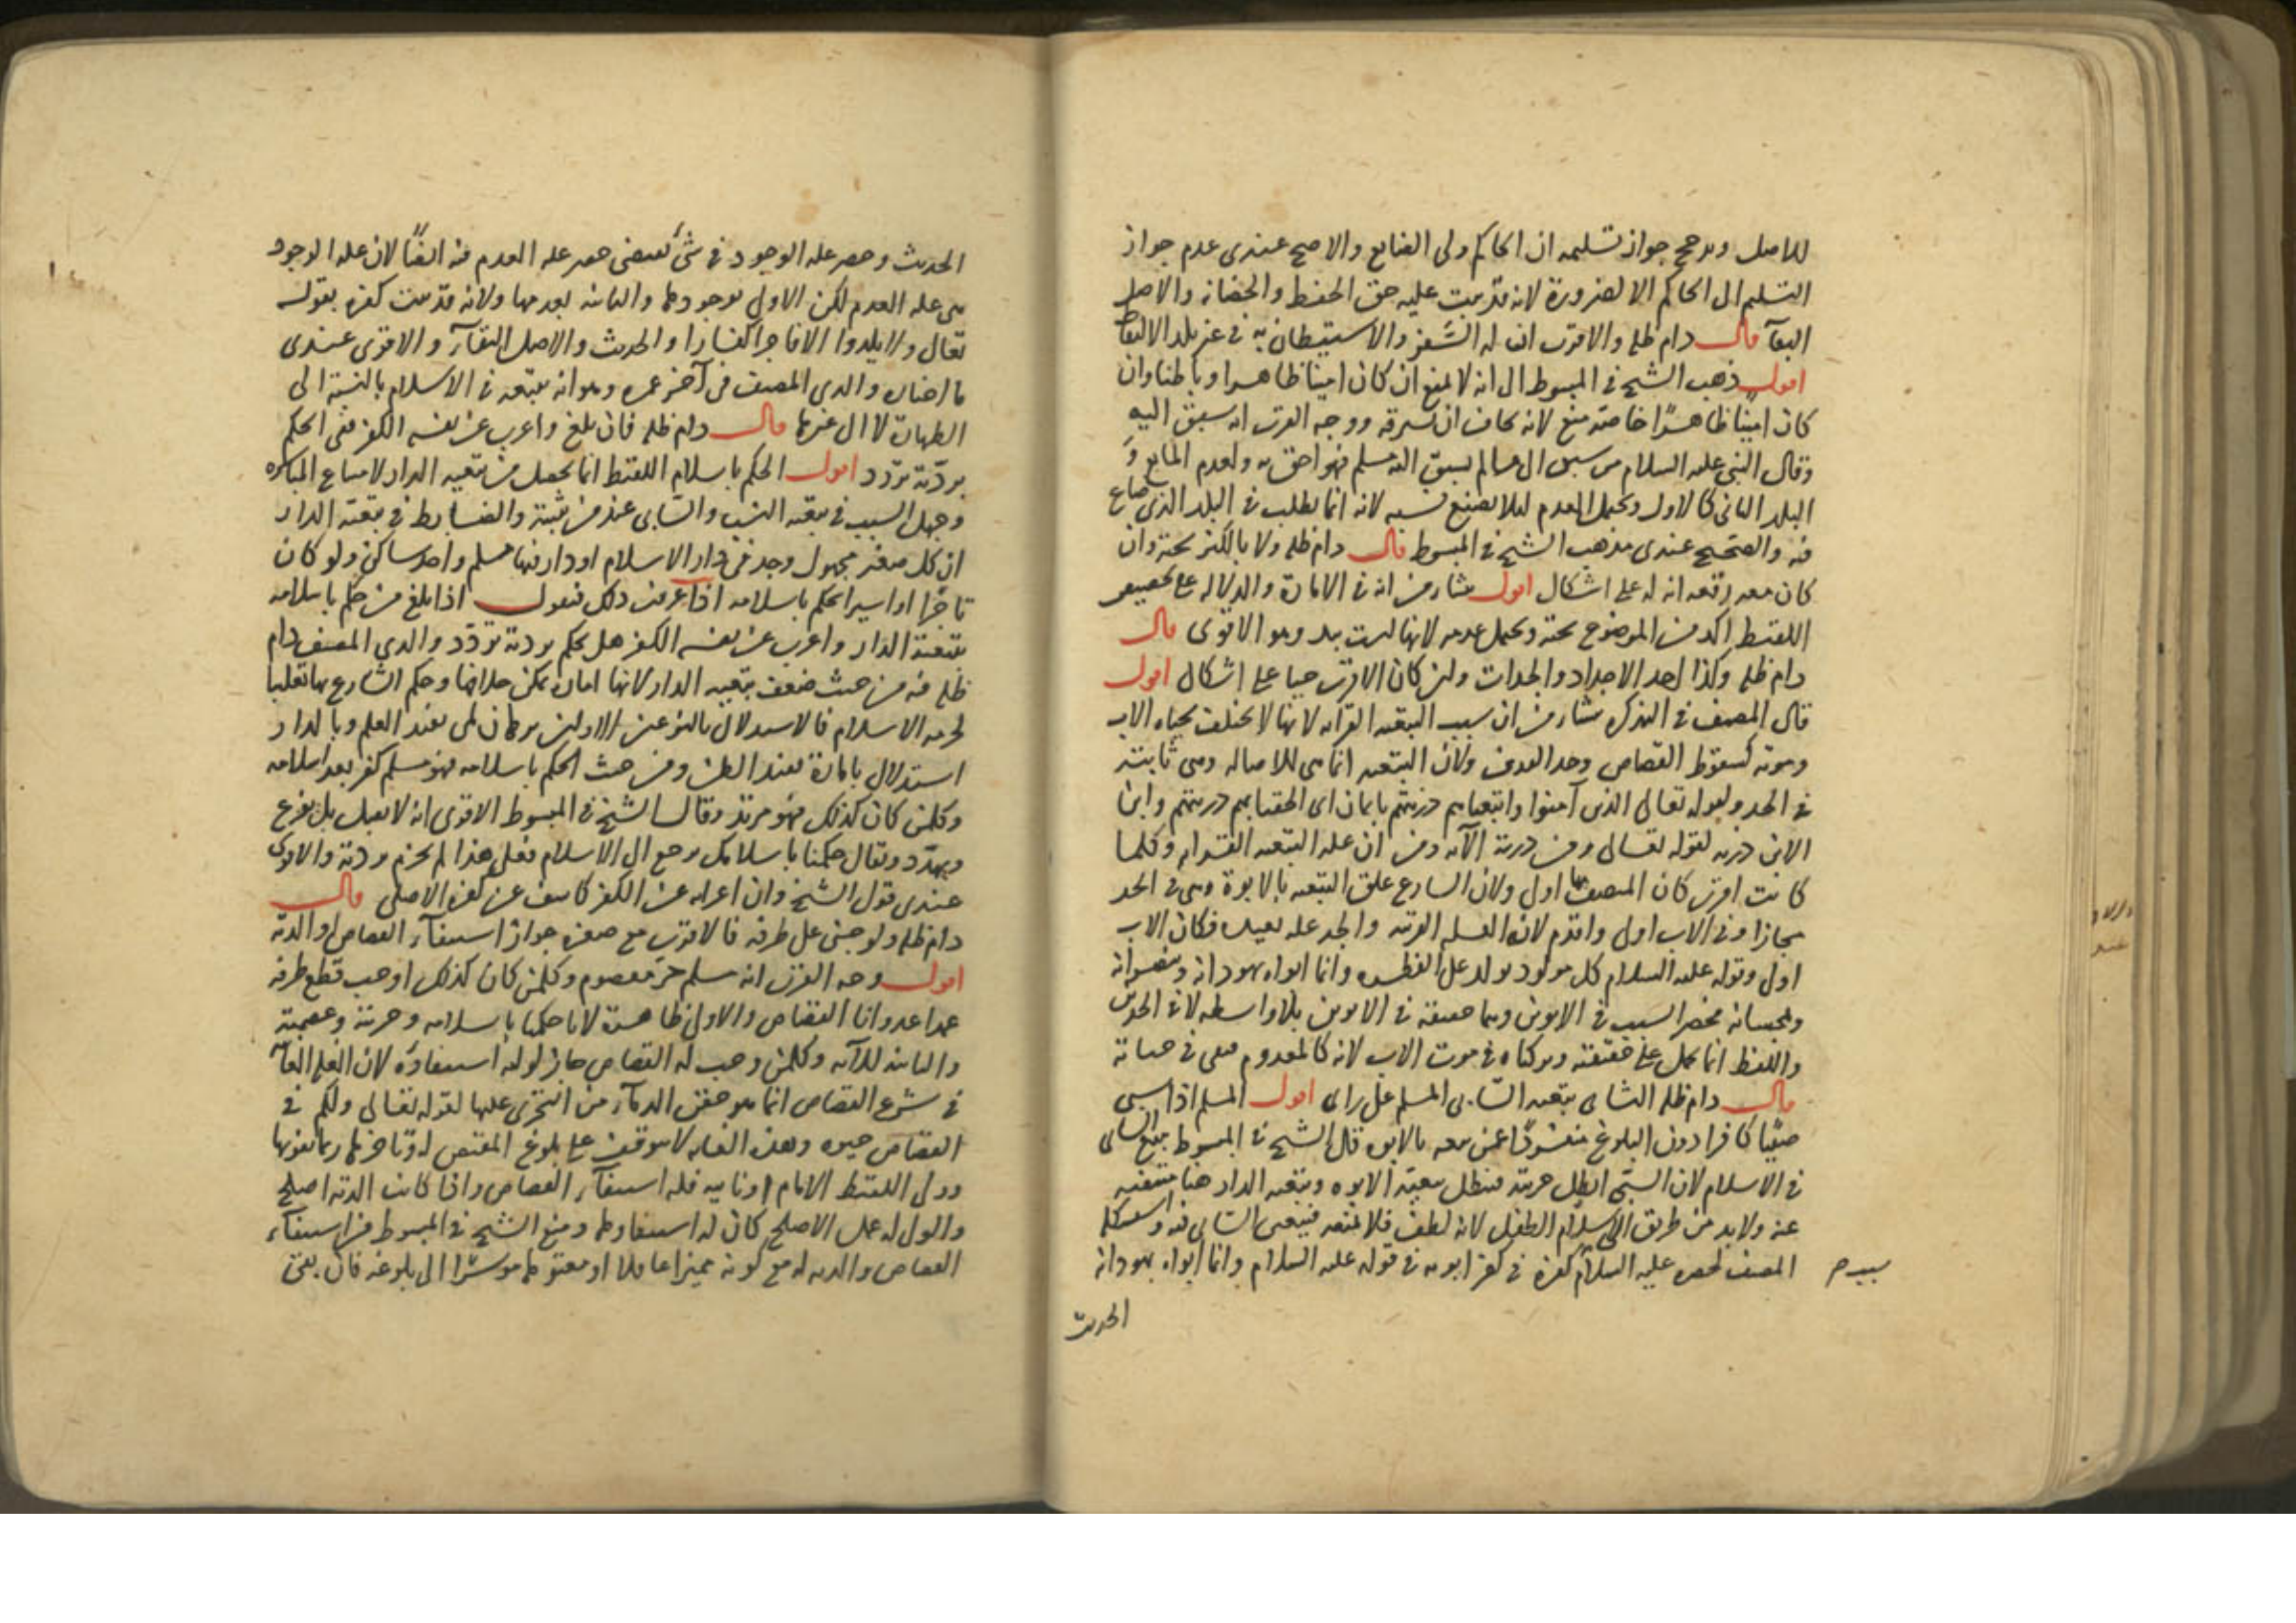 للاصل ويرجح جواز تسليمه ان الحاكم ولي الضايع والاصح عندي عدم جواز
التسليم الى الحاكم الا لضرورة لانه قد يثبت عليه حق الحفظ والحضانة والاصل
البقآ قال دام ظله والاقرب ان له السفر والاستيطان به في غير بلد الالتقاط
اقول ذهب الشيخ في المبسوط الى انه لا يمنع ان كان امينا ظاهرا وباطنا وان
كان امينًا ظاهرًا خاصة منع لانه يخاف ان يسرقه ووجه القرب انه سبق اليه
وقال النبي عليه السلام من سبق الى ما لم يسبق اليه مسلم فهو احق به ولعدم المانع و
البلد الثاني كالاول ويحتمل العدم لئلا يضيع نسبه لانه انما يطلب في البلد الذي ضاع
فيه والصحيح عندي مذهب الشيخ في المبسوط قال دام ظله ولا بالكنز تحته وان
كان معه رقعه انه له على اشكال اقول ينشا من انه في الامارة والدلاله على تخصيص
اللقيط اكد من الموضوع تحته ويحتمل عدمه لانها ليست بيد وهو الاقوى قال
دام ظله وكذا احد الاجداد والجدات ولو كان الاقرب حيا على اشكال اقول
قال المصنف في التذكره ينشا من ان سبب التبعيه القرابه لانها لا تختلف بحياه الاب
وموته كسقوط القصاص وحد القذف ولان التبعيه انما هي للاصاله وهي ثابتة
في الجد ولقوله تعالى الذين آمنوا واتبعناهم ذريتهم بايمان اي الحقنا بهم ذريتهم وابن
الابن ذريه لقوله تعالى ومن ذريته الآيه ومن ان عله التبعيه القرابه وكلما
كانت اقرب كان المتصف بها اولى ولان الشارع علق التبعيه بالابوة وهي في الجد
مجازا وفي الاب اولى واقدم لانه العله القريبه والجد عله بعيده فكان الاب
اولى وقوله عليه السلام كل مولود يولد على الفطره وانما ابواه يهودانه وينصرانه
ويمجسانه فحصر السبب في الابوين وهما حقيقة في الابوين بلا واسطه لانه الحدين
واللفظ انما يحمل على حقيقته وتركناه في موت الاب لانه كالمعدوم فبقي في حياته
قال دام ظله الثاني تبعيه السابي المسلم على راي اقول المسلم اذا سبى
صبيًا كافرا دون البلوغ منفردًا عن معه بالابوه قال الشيخ في المبسوط يتبع السابي
في الاسلام لان السبي ابطل حريته فتبطل تبعيه الابوه وتبعيه الدار هنا منتفيه
عنه ولابد من طريق الى اسلام الطفل لانه لطف فلا يمنعه فيتعين السابي فيه واستشكله
المصنف لحصره عليه السلام كفره في كفر ابويه في قوله عليه السلام وانما ابواه يهودانه
الحديث
الحديث وحصر عله الوجود في شيء يقتضي حصر عله العدم فيه ايضًا لان عله الوجود
هي عله العدم لكن الاولى بوجودها والثانيه بعدمها ولانه قد ثبت كفره بقوله
تعالى ولا يلدوا الا فاجرا كفارا والحديث والاصل البقآء والاقوى عندي
ما اختاره والدي المصنف في آخر عمره وهو انه يتبعه في الاسلام بالنسبة الى
الطهارة لا الى غيرها قال دام ظله فان بلغ واعرب عن نفسه الكفر ففي الحكم
بردّته تردد اقول الحكم باسلام اللقيط انما يحصل من تبعيه الدار لامتناع المباشره
وجهل السبب في تبعيه النسب والسابي عند من يثبته والضابط في تبعية الدار
ان كل صغير مجهول وجد في دار الاسلام او دار فيها مسلم واحد ساكن ولو كان
تاجرًا او اسيرا حكم باسلامه اذا عرفت ذلك فنقول اذا بلغ من حكم باسلامه
بتبعية الدار واعرب عن نفسه الكفر هل يحكم بردته تردّد والدي المصنف دام
ظله فيه من حيث ضعف تبعيه الدار لانها امارة يمكن خلافها وحكم الشارع بها تغليبا
لحرمه الاسلام فالاستدلال بالنوعين الاولين برهان لمي يفيد العلم وبالدار
استدلال بامارة يفيد الظن ومن حيث الحكم باسلامه فهو مسلم كفر بعد اسلامه
وكل من كان كذلك فهو مرتد وقال الشيخ في المبسوط الاقوى انه لا يقبل بل يفزع
ويهدد ويقال حكمنا باسلامك ترجع الى الاسلام فعلى هذا لم يجزم بردته والاقوى
عندي قول الشيخ وان اعرابه عن الكفر كاشف عن كفره الاصلي قال
دام ظله ولو جني على طرفه فالاقرب مع صغره جواز استيفآء القصاص او الدية
اقول وجه القرب انه مسلم حر معصوم وكل من كان كذلك اوجب قطع طرفه
عمدا عدوانا القصاص والاولى ظاهرة لانا حكمنا باسلامه وحريته وعصمته
والثانيه للآيه وكل من وجب له القصاص جاز لوليه استيفاؤه لان العله الغآئيه
في شرع القصاص انما هو حقن الدمآء من التجري عليها لقوله تعالى ولكم في
القصاص حيوه وهذه الغايه لا تتوقف على بلوغ المقتص له وتاخيرها ربما يفوتها
وولي اللقيط الامام او نايبه فله استيفآء القصاص واذا كانت الدية اصلح
والولي له عمل الاصلح كان له استيفاوها ومنع الشيخ في المبسوط من استيفآء
القصاص والديه له مع كونه مميزا عاقلا او معتوها موسرًا الى بلوغه فان بقي